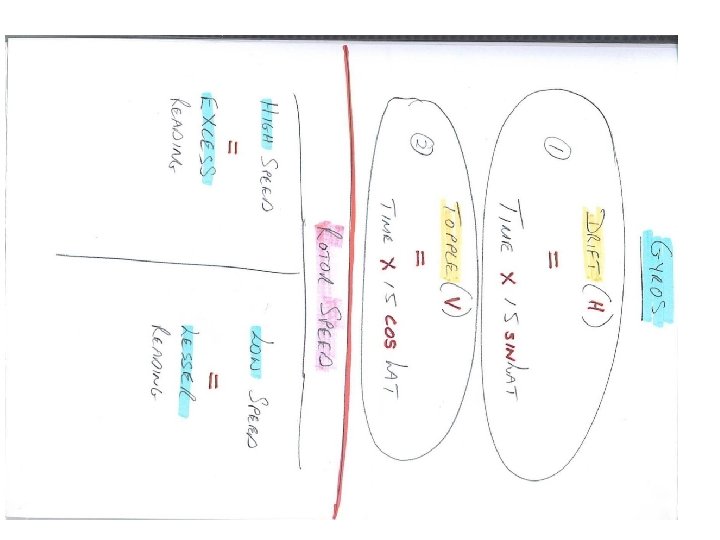 GYROS
① DRIFT (H)
=
TIME X 15 SIN LAT
② TOPPLE (V)
=
TIME X 15 COS LAT
ROTOR SPEED
HIGH SPEED
=
EXCESS
READING
LOW SPEED
=
LESSER
READING